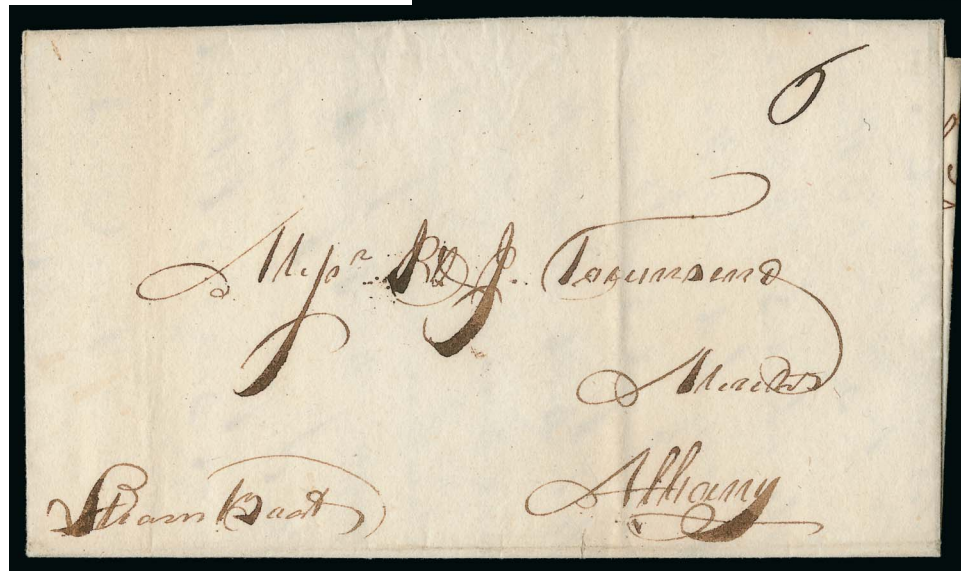 6
Messrs. J. Townsend
Merchts
Albany
Steam Boat